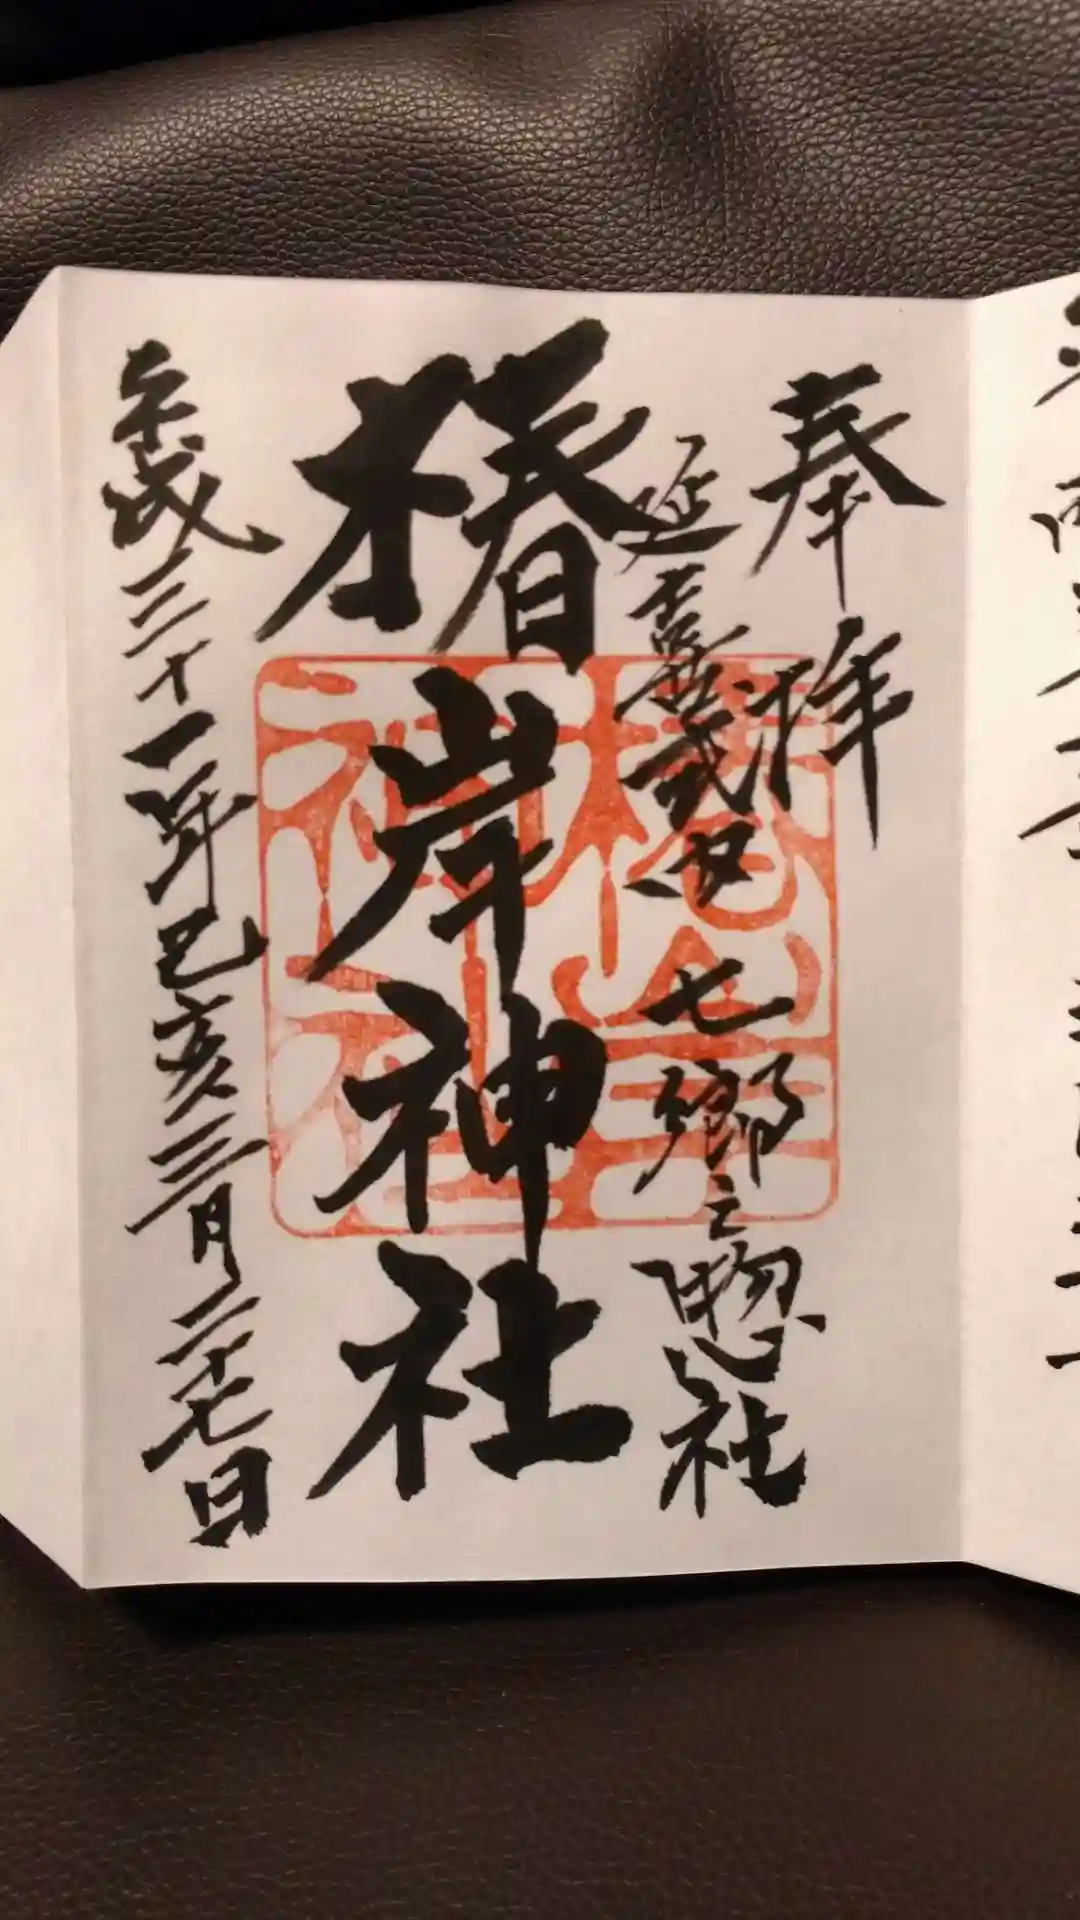 奉拝
延喜式内 七郷之惣社
椿岸神社
平成三十一年己亥三月二十七日
椿岸神社